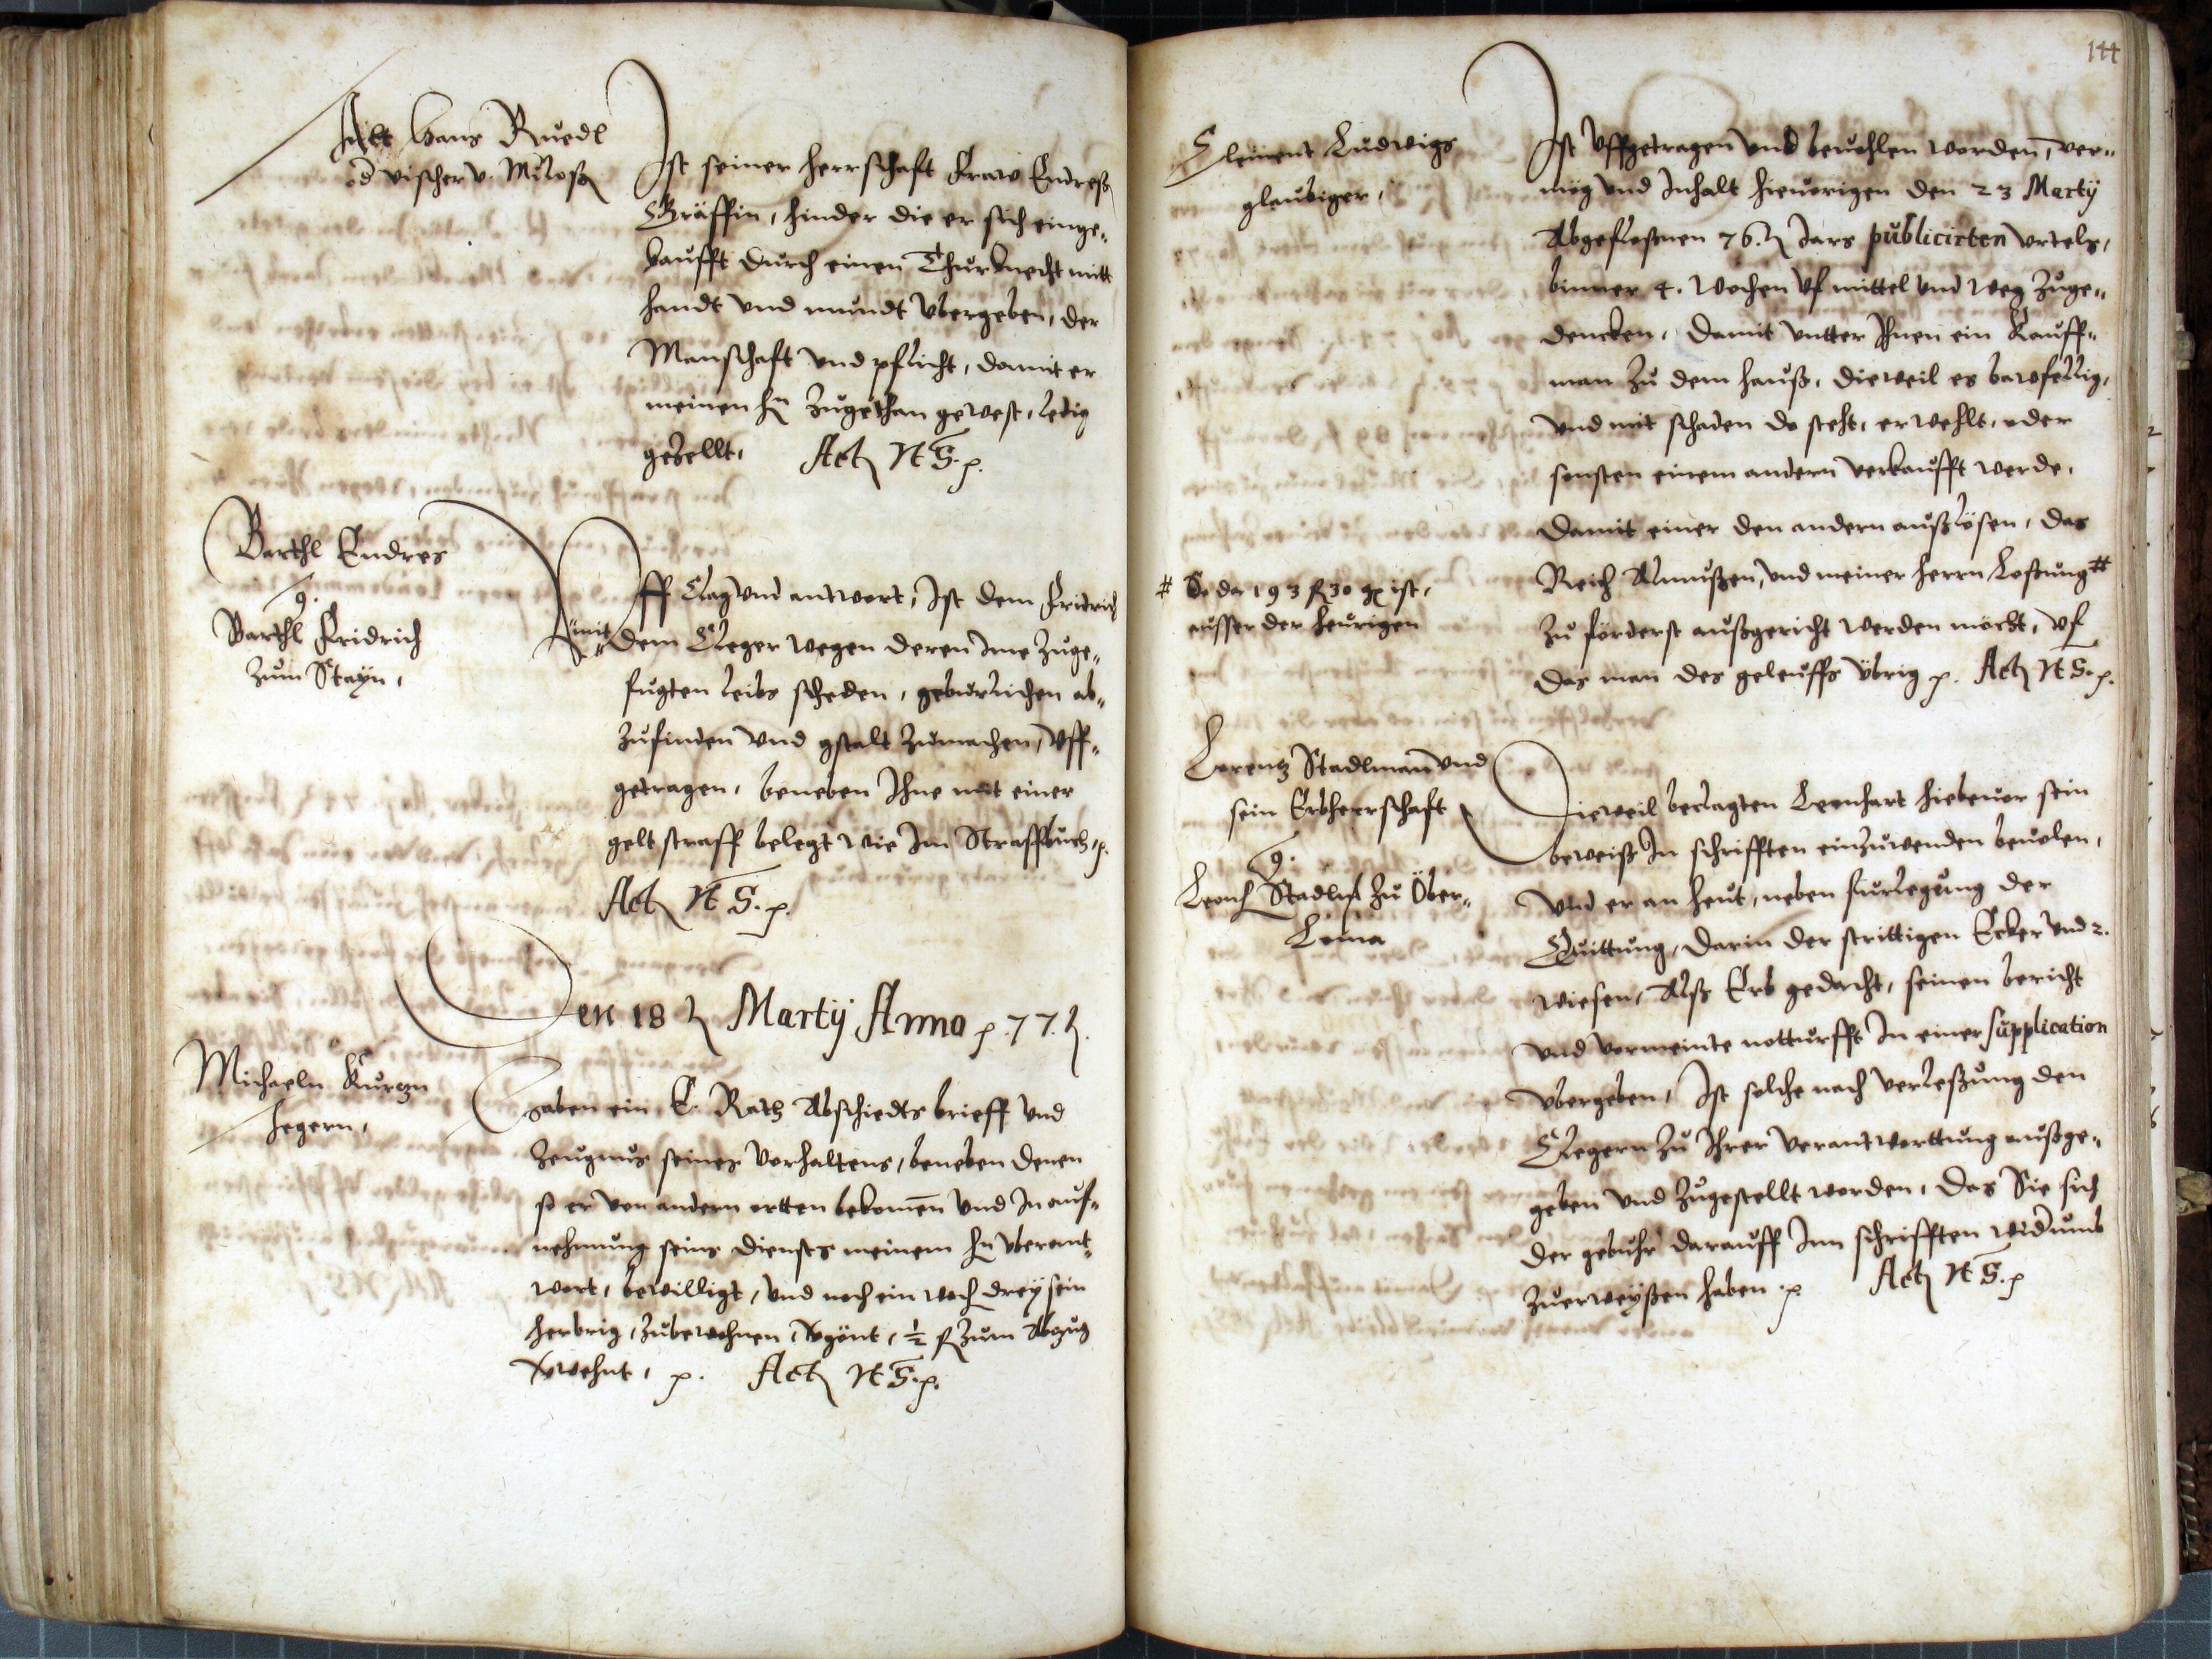 Alt Hans Ruedl
od vischer v. Miloß
Ist seiner herrschafft Fraw Endreß
Gräffin, hinder die er sich einge„
kaufft durch einen Thurknecht mitt
handt vnd mundt vbergeben, der
Manschafft vnd pflicht, damit er
meinen hn zugethan gewest, ledig
gezellt, Act H S. p.
Barthl Endres
g.
Barthl Fridrich
zum Stayn,
Vff Clag vnd antwort, Ist dem Fridrich
mit dem Cleger wegen deren Ime zuge„
fugten leibs scheden, geburlichen ab„
zufinden vnd gstalt zumachen, vff„
getragen, beneben Ihne mit einer
gelt straff belegt wie Im Straffbuch, p.
Act H S. p.
Den 18 Martÿ Anno p. 77.
Michaeln Kurtzn
hegern,
Haben ein E. Rath Abschiedts brieff vnd
zeugnus seines verhaltens, beneben denen
so er von andern ortten bekomen vnd In auf„
nehmung seins diensts meinem hn vberant„
wort, bewilligt, vnd noch ein woch dreÿ sein
herbrig, zubewohnen, vgönt, ½ fl zum Abzug
vwehnt, p. Act H S. p.
144
Clement Ludwigs
glaubiger,
Ist vffgetragen vnd beuohlen worden, ver„
mög vnd Inhalt hieuorigen den 23 Martÿ
Abgeflossnen 76. Jars publicirten vrtels,
binner 4. wochen vf mittel vnd weg zuge„
dencken, damit vntter Ihnen ein Kauff„
man zu dem hauß, dieweil es bawfellig,
vnd mit schaden do steht, erwehlt, oder
sonsten einem andern verkaufft werde,
damit einer den andern außlösen, das
Reich Almußen, vnd meiner herrn Loßung #
zu förderst außgericht werden möcht, vf
das man des geleuffs übrig p. Act H S. p.
# So da 193 fl 30 ist,
ausser der heurigen
Lorentz Stadlman vnd
sein Erbherrschafft
g.
Leonh Stadlman zu Ober„
Dieweil beclagten Leonhart hiebeuor sein
beweiß In schrifften einzuwenden beuolen,
vnd er an heut, neben furlegung der
Quittung, darin der strittigen Ecker vnd 2.
wiesen, Alß Erb gedacht, seinen bericht
vnd vermeinte notturfft In einer supplication
vbergeben, Ist solche nach verleßung den
Clegern zu Ihrer verantworttung außge„
geben vnd zugestellt worden, das Sie sich
der gebuhr darauff Inn schrifften widrumb
zuerweÿßen haben p Act H S. p